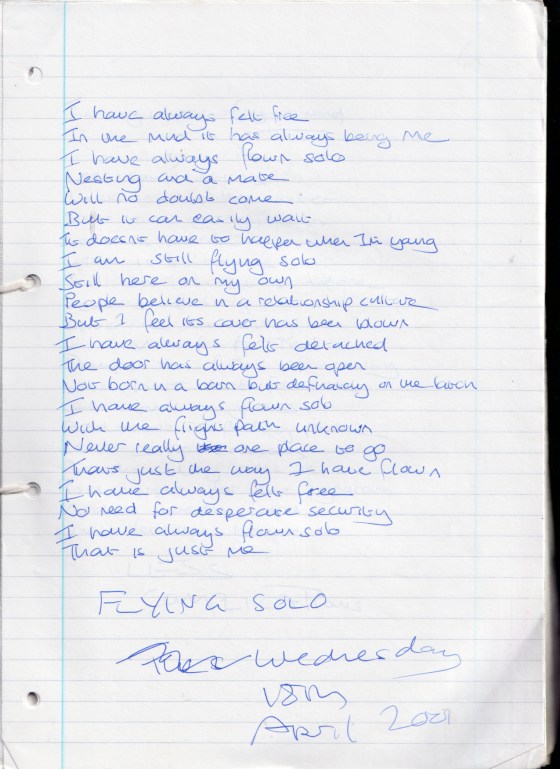 I have always felt free
In the mind it has always being me
I have always flown solo
Nesting and a mate
Will no doubt come
But it can easily wait
It doesnt have to happen when I'm young
I am still flying solo
Still here on my own
People believe in a relationship culture
But I feel its cover has been blown
I have always felt detached
The door has always been open
Not born in a barn but definatley on the latch
I have always flown solo
With the flight path unknown
Never really one place to go
Thats just the way I have flown
I have always felt free
No need for desperate security
I have always flown solo
That is just me
FLYING SOLO
Wednesday
18th
April 2001